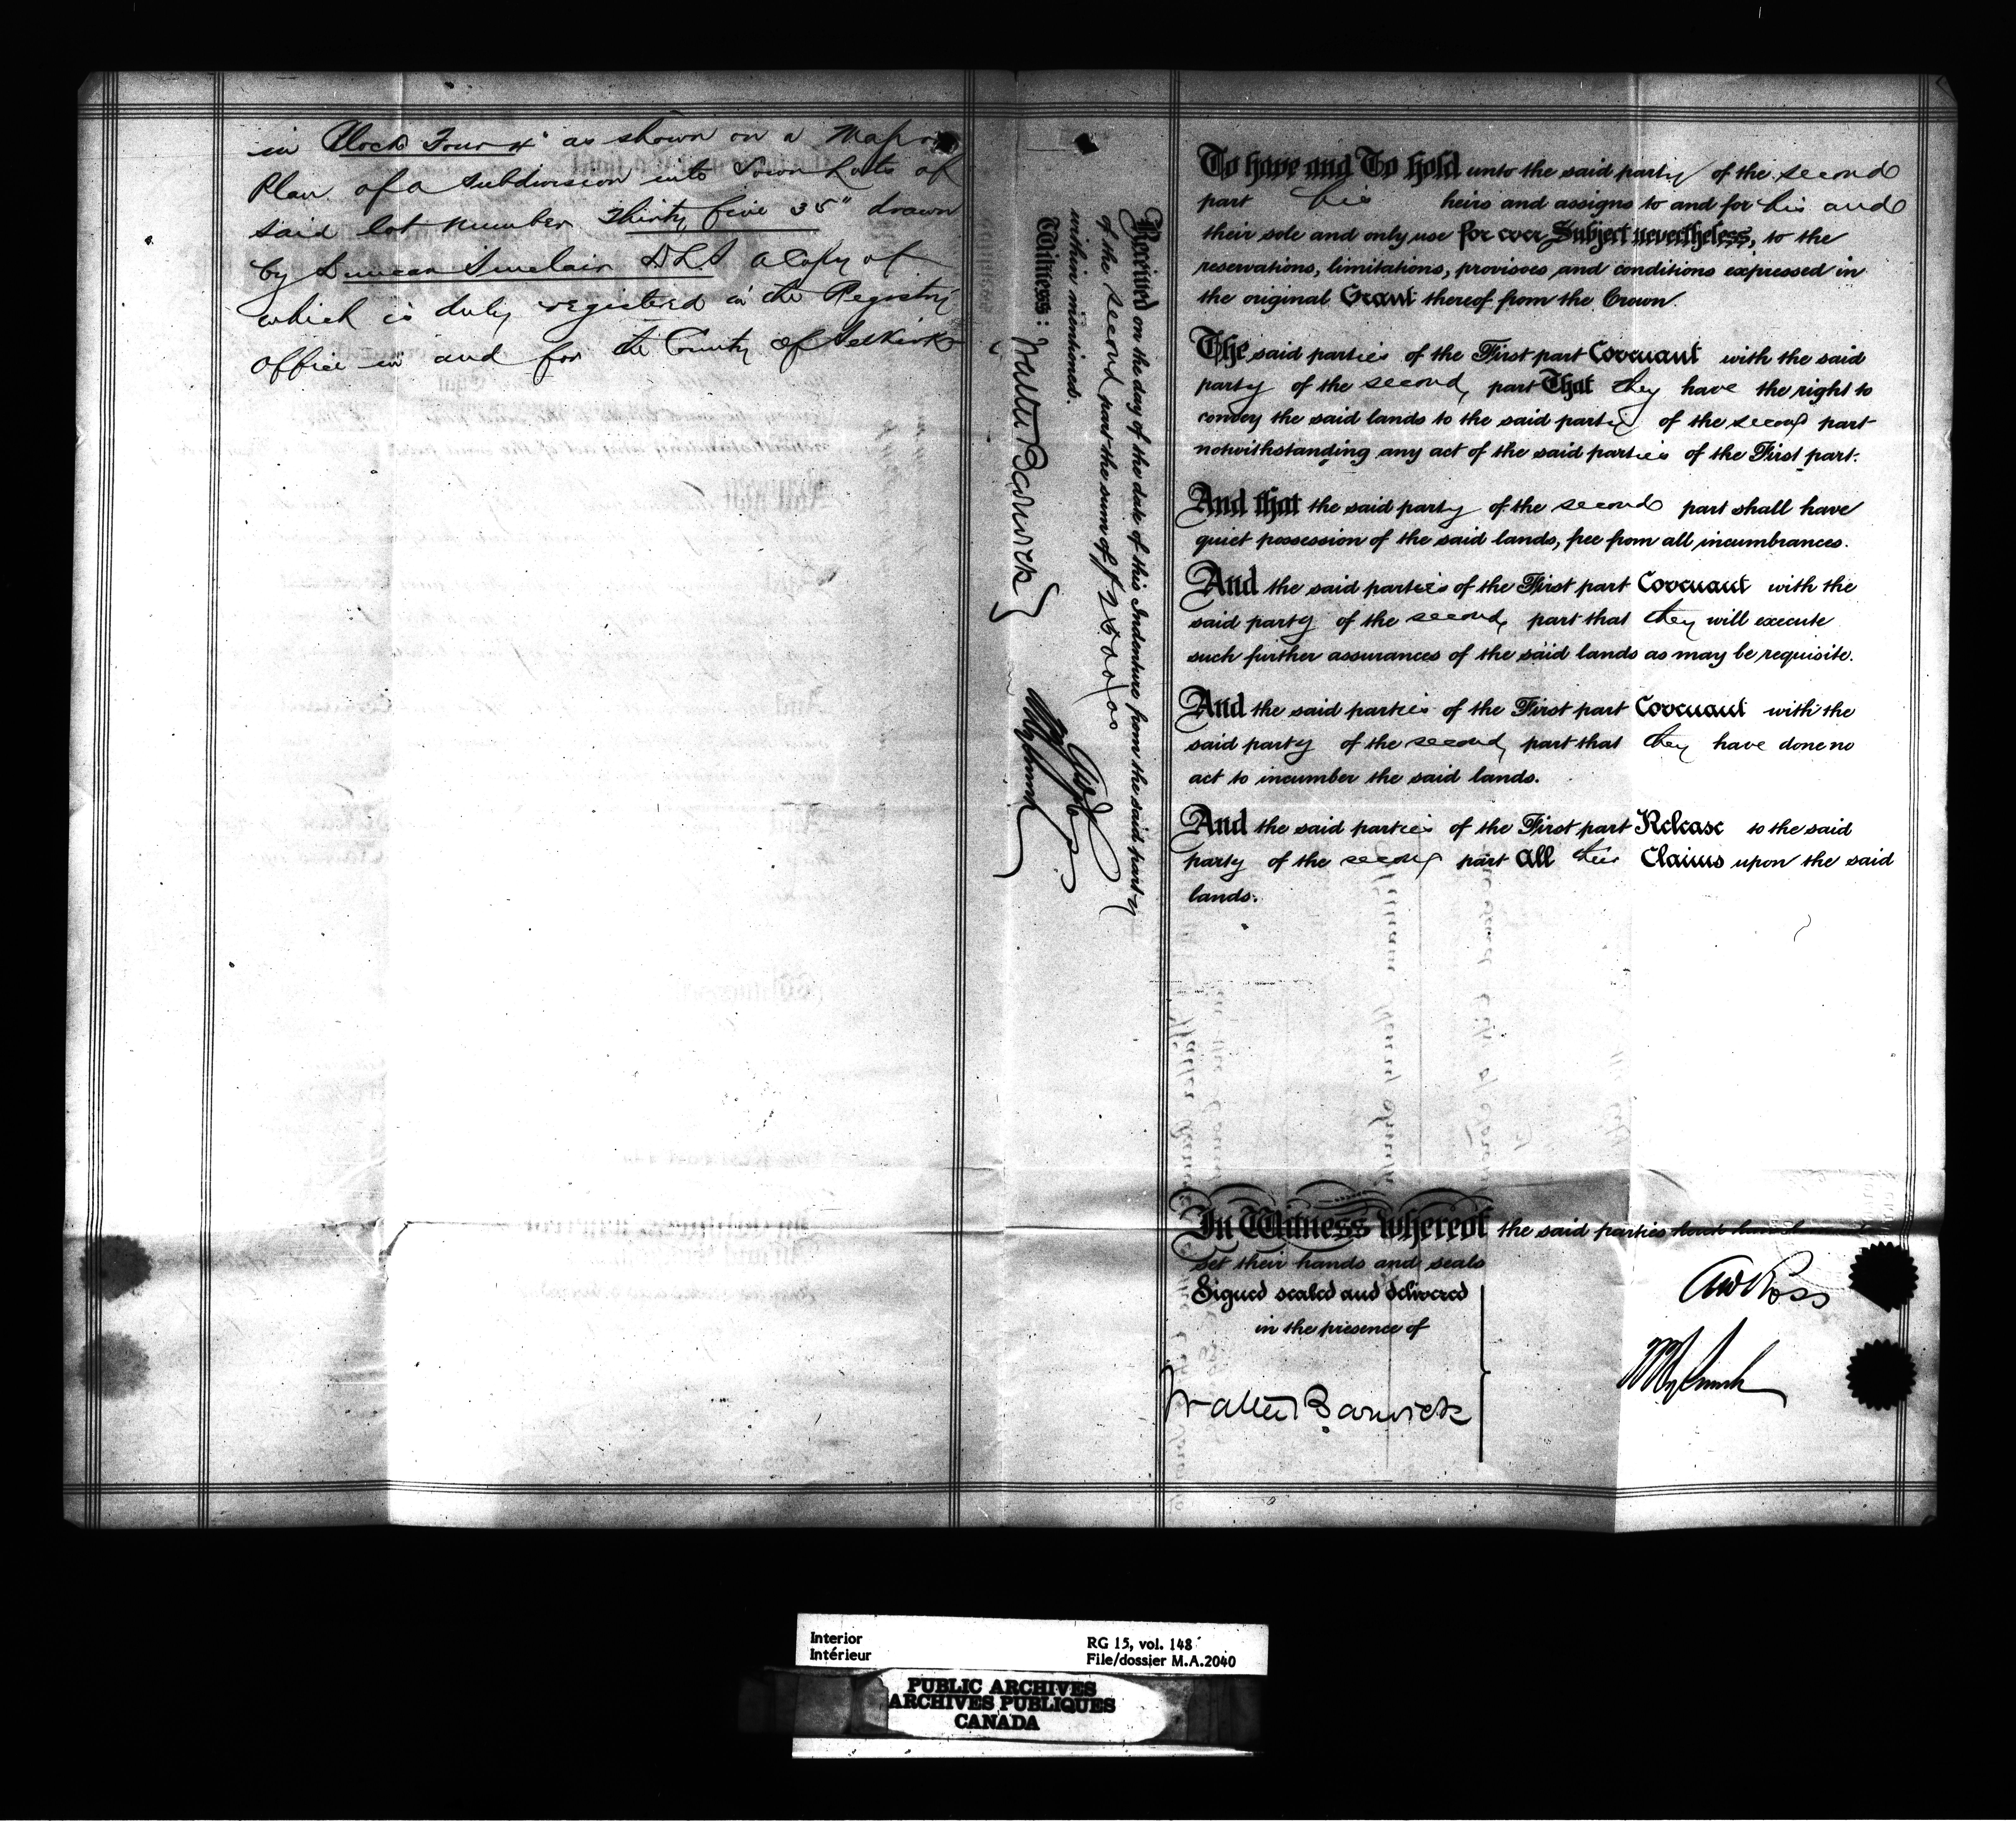 in Block Four 4" as shown on a Map or
Plan of a subdivision into Town Lots of
said lot number Thirty five 35" drawn
by Duncan Sinclair DLS a Copy of
which is duly registered in the Registry
Office in and for the County of Selkirk
Received on the day of the date of this Indenture from the said party
of the second part the sum of $2500/00
within mentioned.
Witness:
Walter Barwick }
AW Ross
To have and To hold unto the said party of the second
part his heirs and assigns to and for his and
their sole and only use for ever Subject nevertheless, to the
reservations, limitations, provisoes, and conditions expressed in
the original Grant thereof from the Crown.
The said parties of the First part Covenant with the said
party of the second part That they have the right to
convey the said lands to the said party of the second part
notwithstanding any act of the said parties of the First part.
And that the said party of the second part shall have
quiet possession of the said lands, free from all incumbrances.
And the said parties of the First part Covenant with the
said party of the second part that they will execute
such further assurances of the said lands as may be requisite.
And the said parties of the First part Covenant with the
said party of the second part that they have done no
act to incumber the said lands.
And the said parties of the First part Release to the said
party of the second part All their Claims upon the said
lands.
In Witness whereof the said parties have hereunto
set their hands and seals
Signed sealed and delivered
in the presence of
Walter Barwick
AW Ross
Interior
Intérieur
RG 15, vol. 148
File/dossier M.A.2040
PUBLIC ARCHIVES
ARCHIVES PUBLIQUES
CANADA